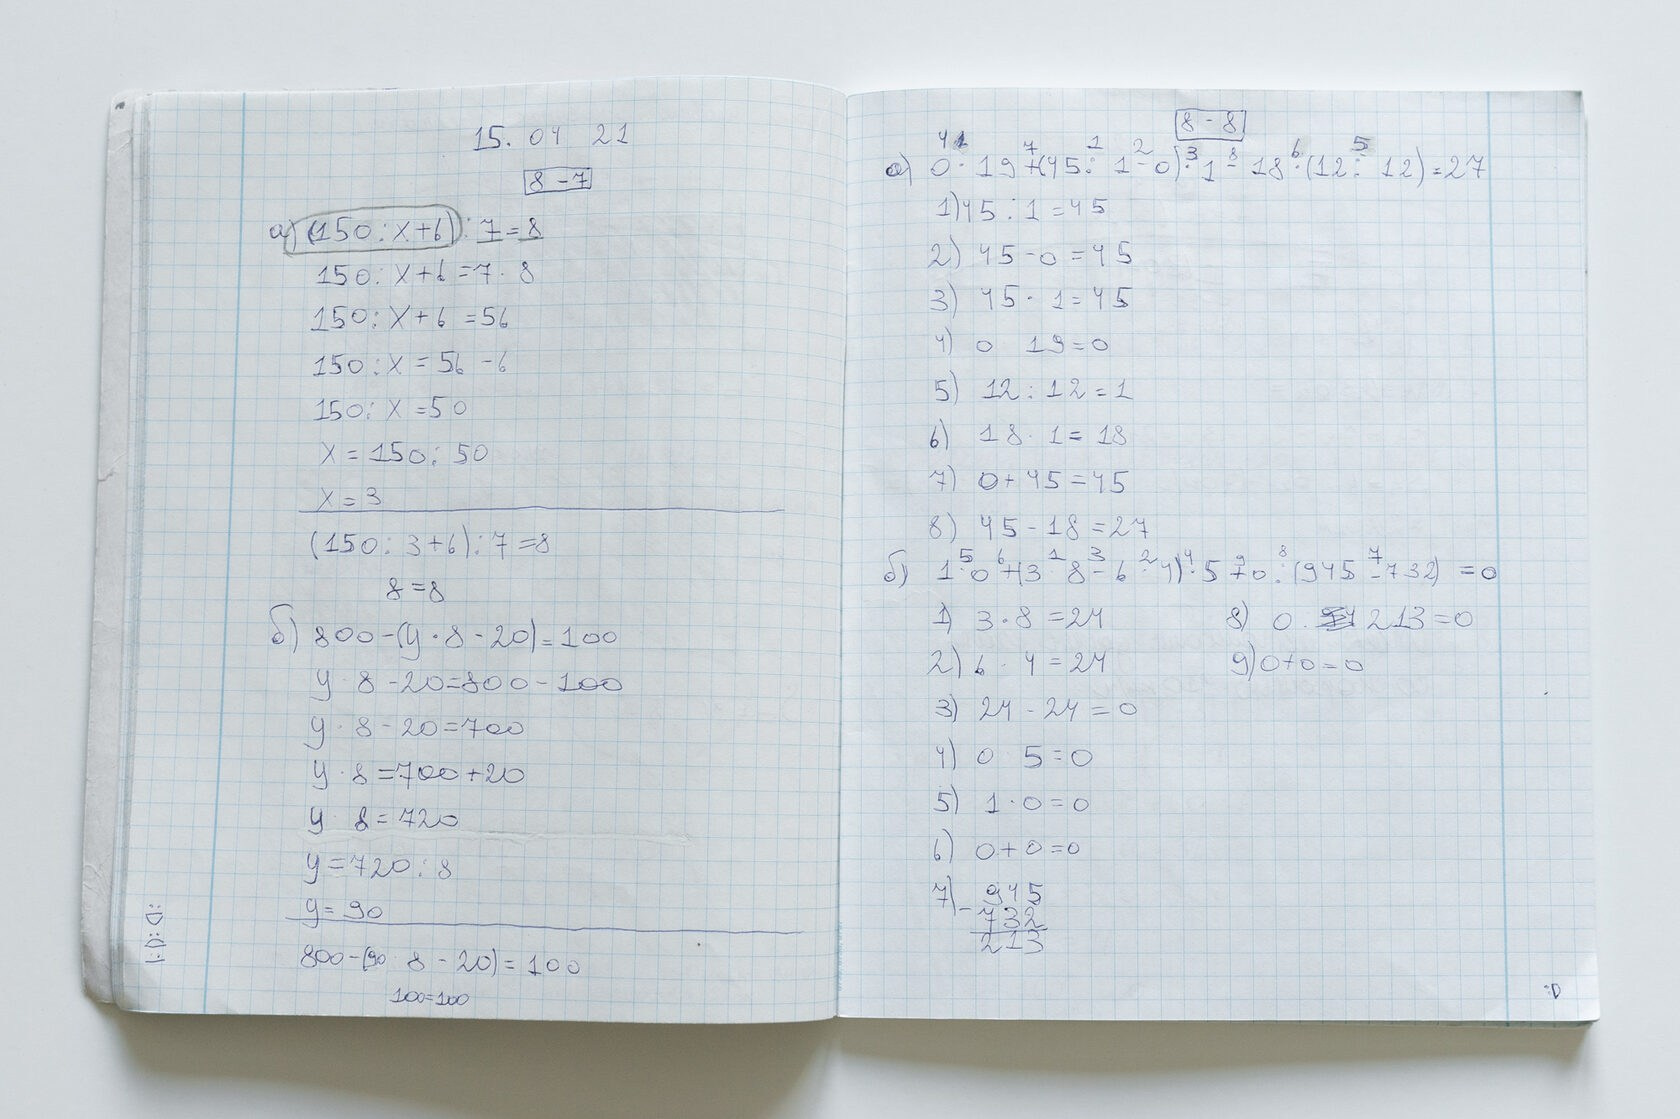 15. 04 21
8-7
а) (150 : х + 6) : 7 = 8
150 : х + 6 = 7 · 8
150 : х + 6 = 56
150 : х = 56 - 6
150 : х = 50
х = 150 : 50
х = 3
(150 : 3 + 6) : 7 = 8
8 = 8
б) 800 - (у · 8 - 20) = 100
у · 8 - 20 = 800 - 100
у · 8 - 20 = 700
у · 8 = 700 + 20
у · 8 = 720
у = 720 : 8
у = 90
800 - (90 · 8 - 20) = 100
100 = 100
:D:D:
8-8
4 7 1 2 3 8 6 5
а) 0 · 19 + (45 : 1 - 0) · 1 - 18 · (12 : 12) = 27
1) 45 : 1 = 45
2) 45 - 0 = 45
3) 45 · 1 = 45
4) 0 19 = 0
5) 12 : 12 = 1
6) 18 · 1 = 18
7) 0 + 45 = 45
8) 45 - 18 = 27
5 6 1 3 2 4 9 8 7
б) 1 · 0 + (3 · 8 - 6 · 4) · 5 + 0 : (945 - 732) = 0
1) 3 · 8 = 24
2) 6 · 4 = 24
3) 24 - 24 = 0
4) 0 5 = 0
5) 1 · 0 = 0
6) 0 + 0 = 0
7) - 945
732
213
8) 0 · 213 = 0
9) 0 + 0 = 0
:D